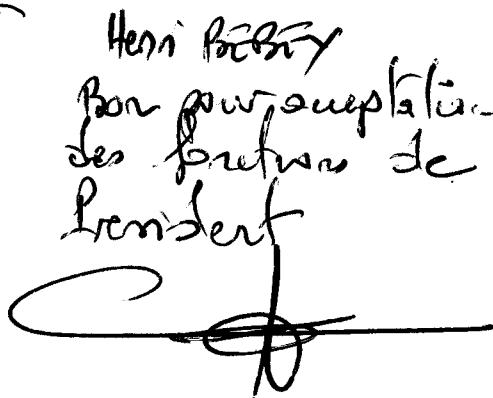 Henri BEBEY
Bon pour acceptation
des fonctions de
President